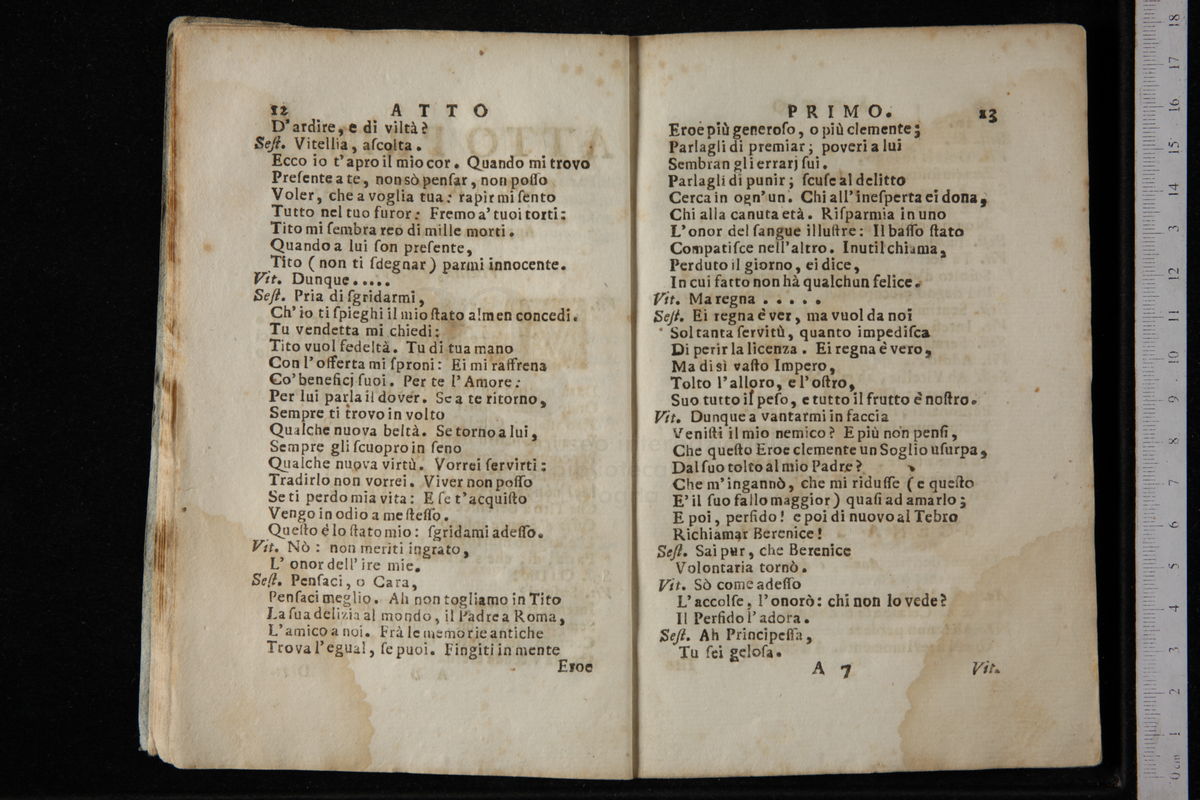 12 ATTO
D'ardire, e di viltà?
Seſt. Vitellia, aſcolta.
Ecco io t'apro il mio cor. Quando mi trovo
Preſente a te, non sò penſar, non poſſo
Voler, che a voglia tua: rapir mi ſento
Tutto nel tuo furor: Fremo a' tuoi torti:
Tito mi ſembra reo di mille morti.
Quando a lui ſon preſente,
Tito (non ti ſdegnar) parmi innocente.
Vit. Dunque.....
Seſt. Pria di ſgridarmi,
Ch'io ti ſpieghi il mio ſtato almen concedi.
Tu vendetta mi chiedi:
Tito vuol fedeltà. Tu di tua mano
Con l'offerta mi ſproni: Ei mi raffrena
Co' beneficj ſuoi. Per te l'Amore:
Per lui parla il dover. Se a te ritorno,
Sempre ti trovo in volto
Qualche nuova beltà. Se torno a lui,
Sempre gli ſcuopro in ſeno
Qualche nuova virtù. Vorrei ſervirti:
Tradirlo non vorrei. Viver non poſſo
Se ti perdo mia vita: E ſe t'acquiſto
Vengo in odio a me ſteſſo.
Queſto è lo ſtato mio: ſgridami adeſſo.
Vit. Nò: non meriti ingrato,
L'onor dell'ire mie.
Seſt. Penſaci, o Cara,
Penſaci meglio. Ah non togliamo in Tito
La ſua delizia al mondo, il Padre a Roma,
L'amico a noi. Frà le memorie antiche
Trova l'egual, ſe puoi. Fingiti in mente
Eroe
PRIMO. 13
Eroe più generoſo, o più clemente;
Parlagli di premiar; poveri a lui
Sembran gli errarj ſui.
Parlagli di punir; ſcuſe al delitto
Cerca in ogn'un. Chi all'ineſperta ei dona,
Chi alla canuta età. Riſparmia in uno
L'onor del ſangue illuſtre: Il baſſo ſtato
Compatiſce nell'altro. Inutil chiama,
Perduto il giorno, ei dice,
In cui fatto non hà qualchun felice.
Vit. Ma regna.....
Seſt. Ei regna è ver, ma vuol da noi
Sol tanta ſervitù, quanto impediſca
Di perir la licenza. Ei regna è vero,
Ma di sì vaſto Impero,
Tolto l'alloro, e l'oſtro,
Suo tutto il peſo, e tutto il frutto è noſtro.
Vit. Dunque a vantarmi in faccia
Veniſti il mio nemico? E più non penſi,
Che queſto Eroe clemente un Soglio uſurpa,
Dal ſuo tolto al mio Padre?
Che m'ingannò, che mi riduſſe (e queſto
E' il ſuo fallo maggior) quaſi ad amarlo;
E poi, perfido! e poi di nuovo al Tebro
Richiamar Berenice!
Seſt. Sai pur, che Berenice
Volontaria tornò.
Vit. Sò come adeſſo
L'accolſe, l'onorò: chi non lo vede?
Il Perfido l'adora.
Seſt. Ah Principeſſa,
Tu ſei geloſa.
A 7 Vit.